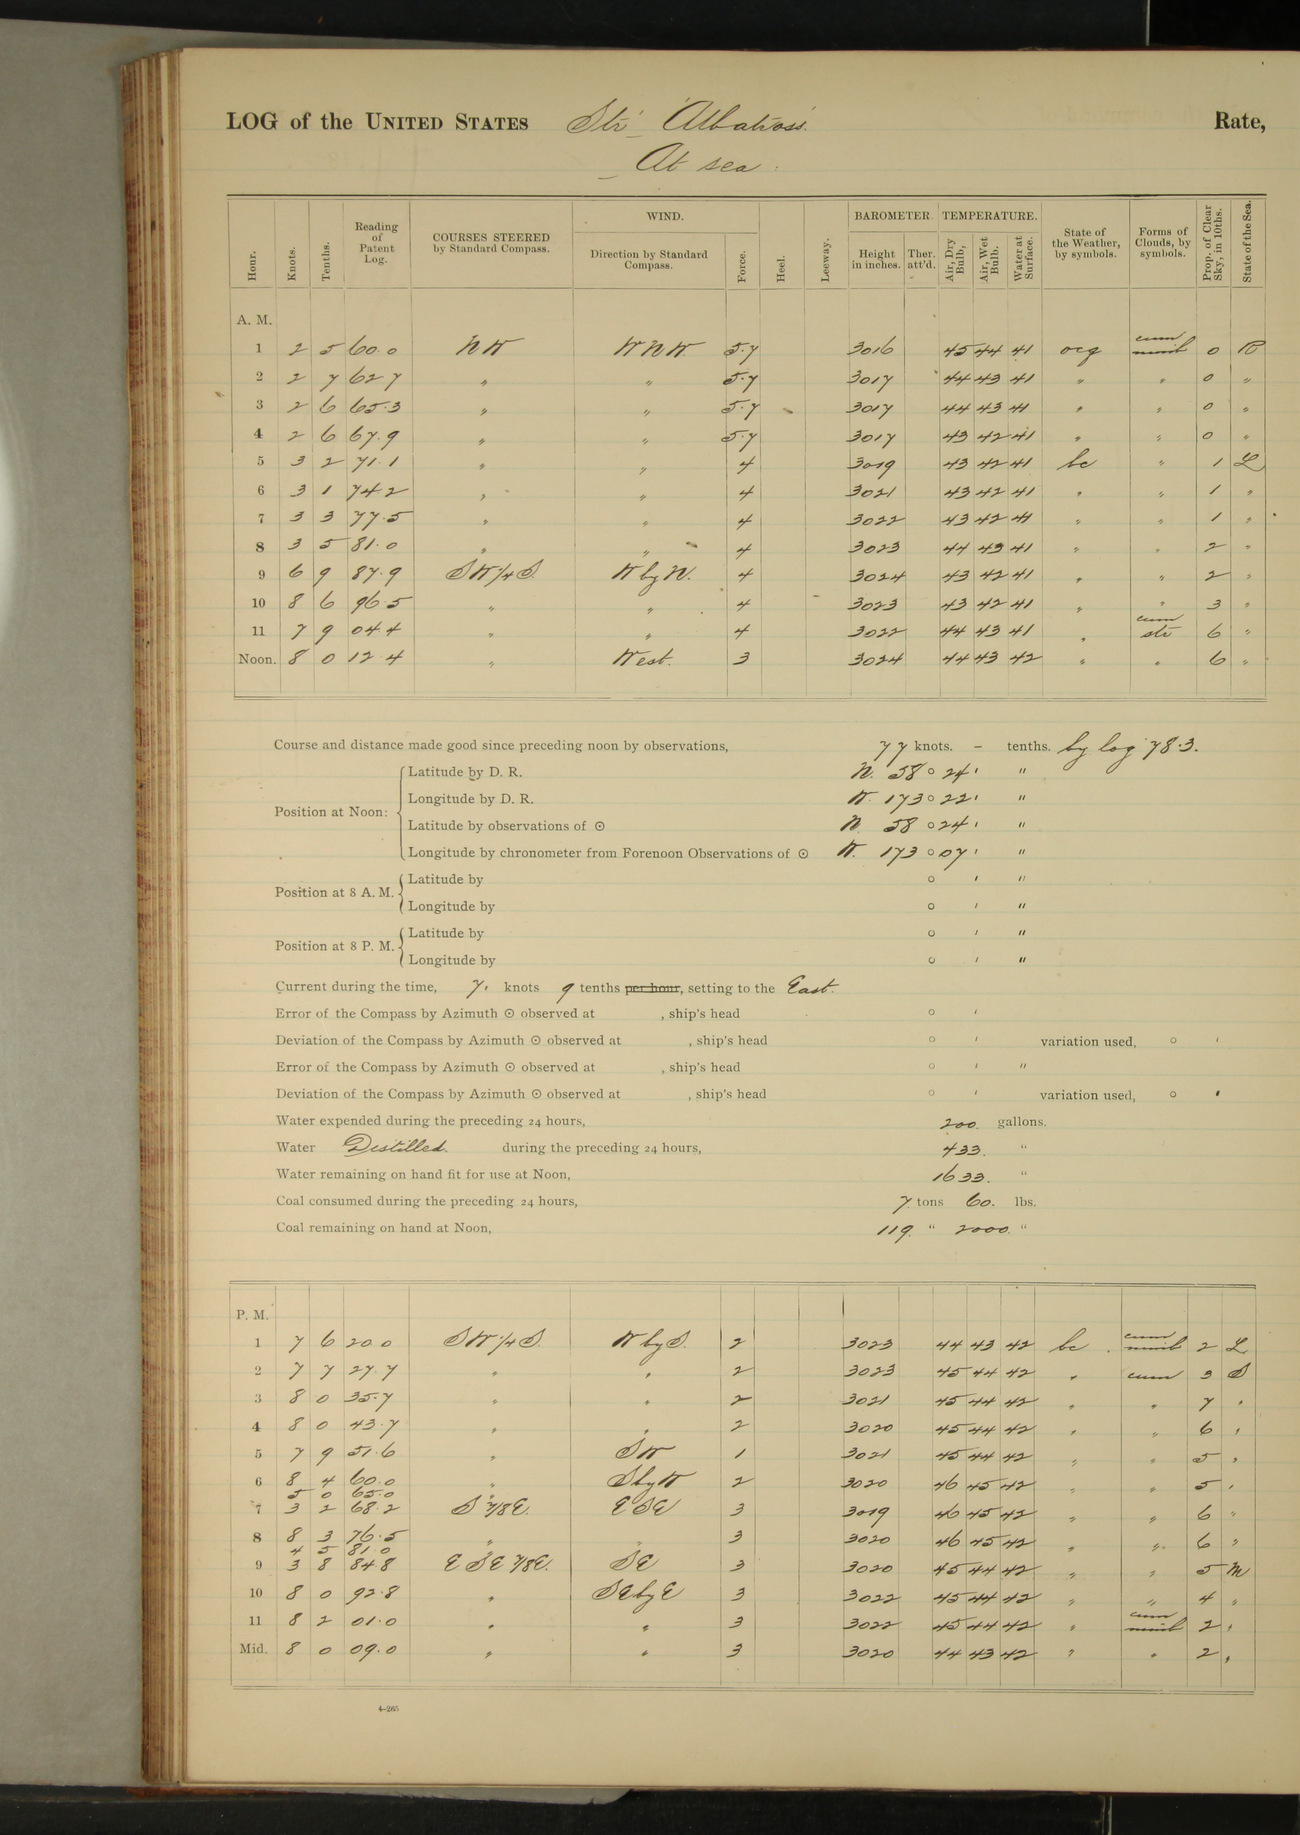 LOG of the UNITED STATES Str "Albatross" Rate,
At sea
Hour. Knots. Tenths. Reading of Patent Log. COURSES STEERED by Standard Compass. WIND. Direction by Standard Compass. Force. Heel. Leeway. BAROMETER. Height in inches. Ther. att'd. TEMPERATURE. Air, Dry Bulb, Air, Wet Bulb. Water at Surface. State of the Weather, by symbols. Forms of Clouds, by symbols. Prop. of Clear Sky, in 10ths. State of the Sea.
A. M.
1 2 5 60.0 NW WNW 5.7 3016 45 44 41 ocg cum nimb 0 R
2 2 7 62 7 " " 5.7 3017 44 43 41 " " 0 "
3 2 6 65.3 " " 5.7 3017 44 43 41 " " 0 "
4 2 6 67.9 " " 5.7 3017 43 42 41 " " 0 "
5 3 2 71.1 " " 4 3019 43 42 41 bc " 1 L
6 3 1 74 2 " " 4 3021 43 42 41 " " 1 "
7 3 3 77.5 " " 4 3022 43 42 41 " " 1 "
8 3 5 81.0 " " 4 3023 44 43 41 " " 2 "
9 6 9 87.9 SW 1/4 S. W by N. 4 3024 43 42 41 " " 2 "
10 8 6 96.5 " " 4 3023 43 42 41 " " 3 "
11 7 9 04 4 " " 4 3022 44 43 41 " cum str 6 "
Noon. 8 0 12 4 " West. 3 3024 44 43 42 " " 6 "
Course and distance made good since preceding noon by observations, 77 knots. - tenths. by log 78.3.
Position at Noon:
Latitude by D. R. N. 58 ° 24 ' "
Longitude by D. R. W. 173 ° 22 ' "
Latitude by observations of ☉ N 58 ° 24 ' "
Longitude by chronometer from Forenoon Observations of ☉ W. 173 ° 07 ' "
Position at 8 A. M.
Latitude by ° ' "
Longitude by ° ' "
Position at 8 P. M.
Latitude by ° ' "
Longitude by ° ' "
Current during the time, 7. knots 9 tenths per hour, setting to the East.
Error of the Compass by Azimuth ☉ observed at , ship's head ° '
Deviation of the Compass by Azimuth ☉ observed at , ship's head ° ' variation used, ° '
Error of the Compass by Azimuth ☉ observed at , ship's head ° ' "
Deviation of the Compass by Azimuth ☉ observed at , ship's head ° ' variation used, ° '
Water expended during the preceding 24 hours, 200. gallons.
Water Distilled. during the preceding 24 hours, 433. "
Water remaining on hand fit for use at Noon, 1633. "
Coal consumed during the preceding 24 hours, 7 tons 60. lbs.
Coal remaining on hand at Noon, 119. " 2000. "
P. M.
1 7 6 20 0 SW 1/4 S. W by S. 2 3023 44 43 42 bc. cum nimb 2 L
2 7 7 27.7 " " 2 3023 45 44 42 " cum 3 S
3 8 0 35.7 " " 2 3021 45 44 42 " " 7 "
4 8 0 43.7 " " 2 3020 45 44 42 " " 6 "
5 7 9 51.6 " SW 1 3021 45 44 42 " " 5 "
6 8 4 60.0 " S by W 2 3020 46 45 42 " " 5 "
5 0 65.0 "
7 3 2 68.2 S 7/8 E. ESE 3 3019 46 45 42 " " 6 "
8 8 3 76.5 " " 3 3020 46 45 42 " " 6 "
4 5 81.0 "
9 3 8 84 8 ESE 7/8 E. SE 3 3020 45 44 42 " " 5 M
10 8 0 92.8 " SE by E 3 3022 45 44 42 " " 4 "
11 8 2 01.0 " " 3 3022 45 44 42 " cum nimb 2 "
Mid. 8 0 09.0 " " 3 3020 44 43 42 " " 2 "
4-265